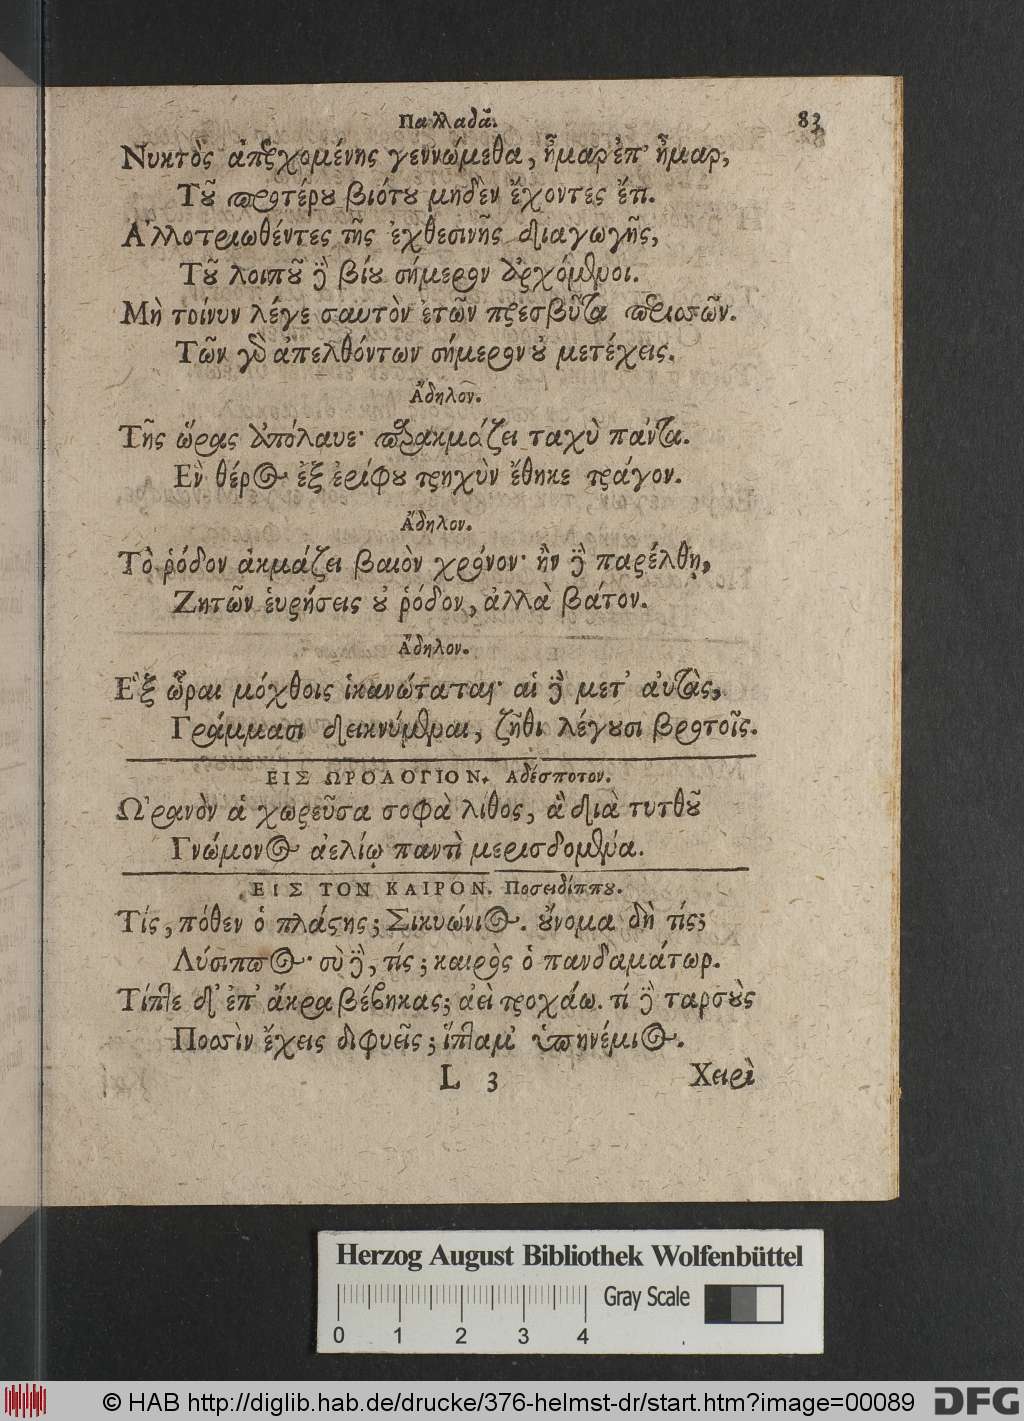 Παλλαδᾶ.
83
Νυκτὸς ἀπερχομένης γεννώμεθα, ἦμαρ ἐπ' ἦμαρ,
Τοῦ προτέρου βιότου μηδὲν ἔχοντες ἔτι.
Ἀλλοτριωθέντες τῆς ἐχθεσινῆς διαγωγῆς,
Τοῦ λοιποῦ δὲ βίου σήμερον ἀρχόμενοι.
Μὴ τοίνυν λέγε σαυτὸν ἐτῶν πρεσβῦτα περισσῶν.
Τῶν γὰρ ἀπελθόντων σήμερον οὐ μετέχεις.
Ἄδηλον.
Τῆς ὥρας ἀπόλαυε· παρακμάζει ταχὺ πάντα.
Ἓν θέρος ἐξ ἐρίφου τρηχὺν ἔθηκε τράγον.
Ἄδηλον.
Τὸ ῥόδον ἀκμάζει βαιὸν χρόνον· ἢν δὲ παρέλθῃ,
Ζητῶν εὑρήσεις οὐ ῥόδον, ἀλλὰ βάτον.
Ἄδηλον.
Ἓξ ὧραι μόχθοις ἱκανώταται· αἱ δὲ μετ' αὐτὰς,
Γράμμασι δεικνύμεναι, ζῆθι λέγουσι βροτοῖς.
ΕΙΣ ΩΡΟΛΟΓΙΟΝ. Ἀδέσποτον.
Ὠρανὸν ἁ χωρεῦσα σοφὰ λίθος, ἃ διὰ τυτθοῦ
Γνώμονος ἀελίῳ παντὶ μερισδομένα.
ΕΙΣ ΤΟΝ ΚΑΙΡΟΝ. Ποσειδίππου.
Τίς, πόθεν ὁ πλάστης; Σικυώνιος. οὔνομα δὴ τίς;
Λύσιππος· σὺ δὲ, τίς; καιρὸς ὁ πανδαμάτωρ.
Τίπτε δ' ἐπ' ἄκρα βέβηκας; ἀεὶ τροχάω. τί δὲ ταρσοὺς
Ποσσὶν ἔχεις διφυεῖς; ἵπταμ' ὑπηνέμιος.
L 3
Χειρὶ
Herzog August Bibliothek Wolfenbüttel
Gray Scale
0 1 2 3 4
© HAB http://diglib.hab.de/drucke/376-helmst-dr/start.htm?image=00089
DFG